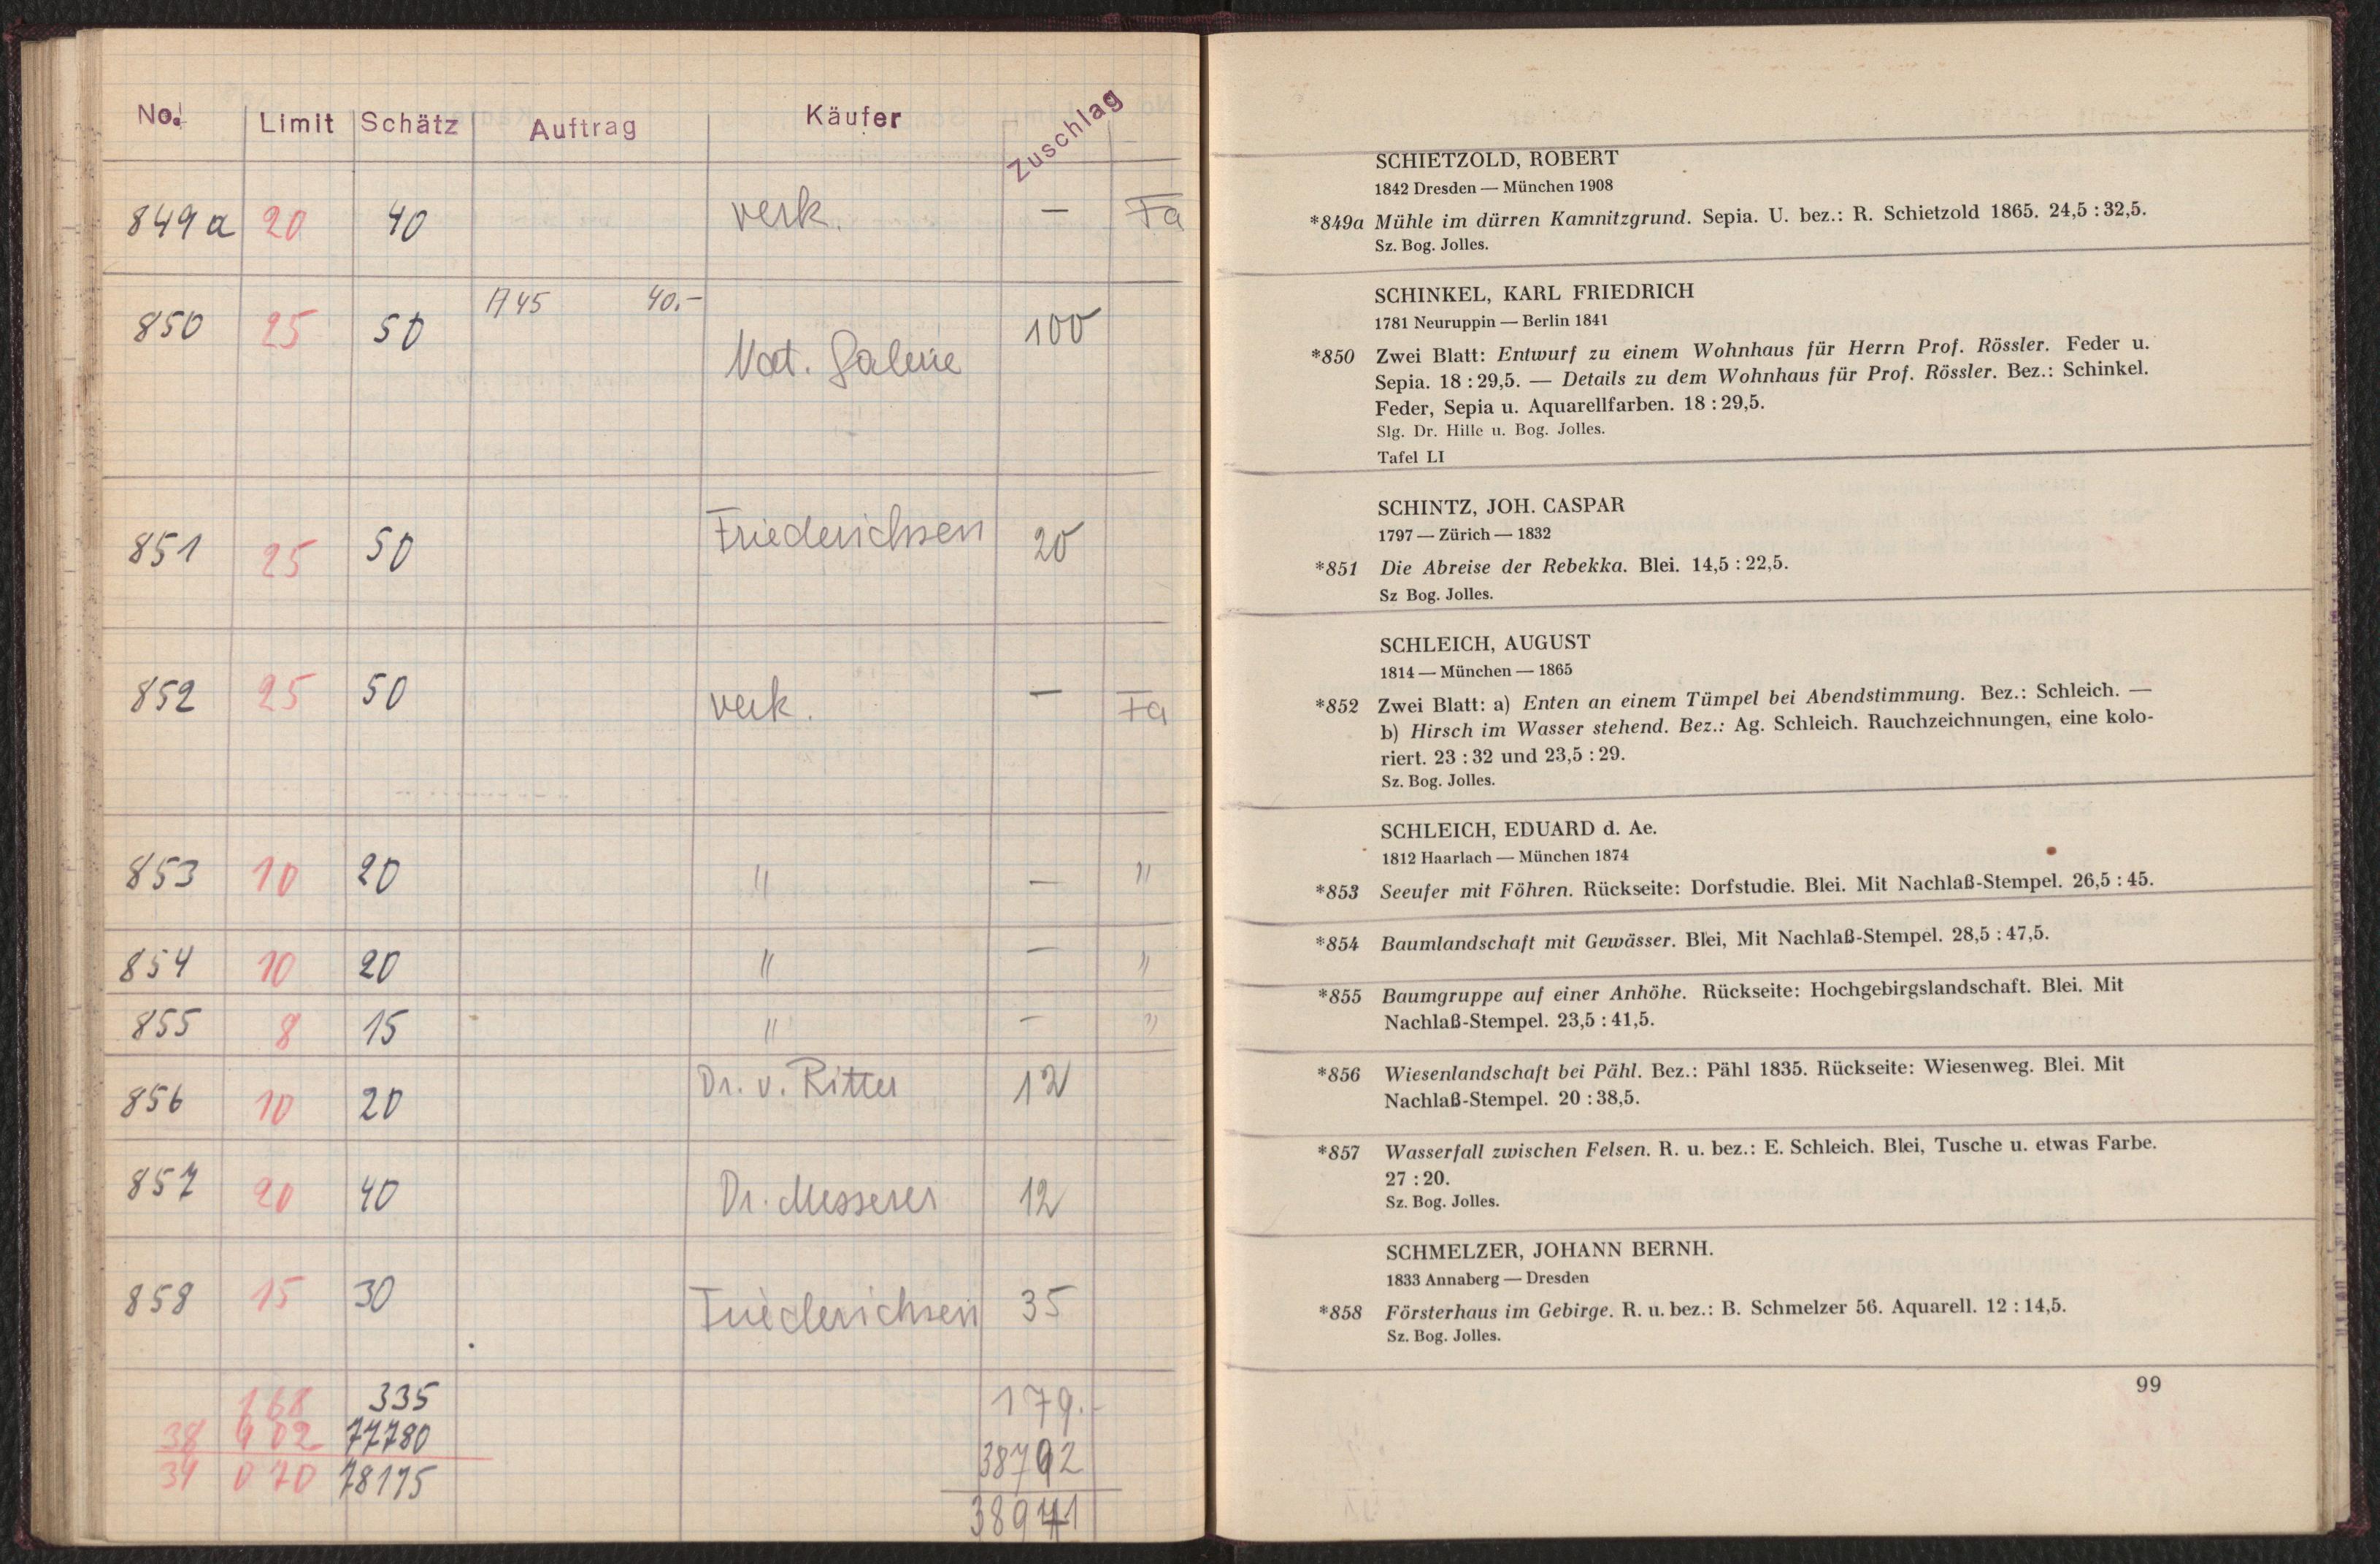 No. Limit Schätz Auftrag Käufer Zuschlag
849a 20 40 verk. — Fa
850 25 50 A 45 40.– Nat. Galerie 100
851 25 50 Friederichsen 20
852 25 50 verk. — Fa
853 10 20 " — "
854 10 20 " — "
855 8 15 " — "
856 10 20 Dr. v. Ritter 12
857 20 40 Dr. Messerer 12
858 15 30 Friederichsen 35
168 335 179.–
38 902 77780
78175
SCHIETZOLD, ROBERT
1842 Dresden — München 1908
*849a Mühle im dürren Kamnitzgrund. Sepia. U. bez.: R. Schietzold 1865. 24,5 : 32,5.
Sz. Bog. Jolles.
SCHINKEL, KARL FRIEDRICH
1781 Neuruppin — Berlin 1841
*850 Zwei Blatt: Entwurf zu einem Wohnhaus für Herrn Prof. Rössler. Feder u.
Sepia. 18 : 29,5. — Details zu dem Wohnhaus für Prof. Rössler. Bez.: Schinkel.
Feder, Sepia u. Aquarellfarben. 18 : 29,5.
Slg. Dr. Hille u. Bog. Jolles.
Tafel LI
SCHINTZ, JOH. CASPAR
1797 — Zürich — 1832
*851 Die Abreise der Rebekka. Blei. 14,5 : 22,5.
Sz Bog. Jolles.
SCHLEICH, AUGUST
1814 — München — 1865
*852 Zwei Blatt: a) Enten an einem Tümpel bei Abendstimmung. Bez.: Schleich. —
b) Hirsch im Wasser stehend. Bez.: Ag. Schleich. Rauchzeichnungen, eine kolo-
riert. 23 : 32 und 23,5 : 29.
Sz. Bog. Jolles.
SCHLEICH, EDUARD d. Ae.
1812 Haarlach — München 1874
*853 Seeufer mit Föhren. Rückseite: Dorfstudie. Blei. Mit Nachlaß-Stempel. 26,5 : 45.
*854 Baumlandschaft mit Gewässer. Blei, Mit Nachlaß-Stempel. 28,5 : 47,5.
*855 Baumgruppe auf einer Anhöhe. Rückseite: Hochgebirgslandschaft. Blei. Mit
Nachlaß-Stempel. 23,5 : 41,5.
*856 Wiesenlandschaft bei Pähl. Bez.: Pähl 1835. Rückseite: Wiesenweg. Blei. Mit
Nachlaß-Stempel. 20 : 38,5.
*857 Wasserfall zwischen Felsen. R. u. bez.: E. Schleich. Blei, Tusche u. etwas Farbe.
27 : 20.
Sz. Bog. Jolles.
SCHMELZER, JOHANN BERNH.
1833 Annaberg — Dresden
*858 Försterhaus im Gebirge. R. u. bez.: B. Schmelzer 56. Aquarell. 12 : 14,5.
Sz. Bog. Jolles.
99